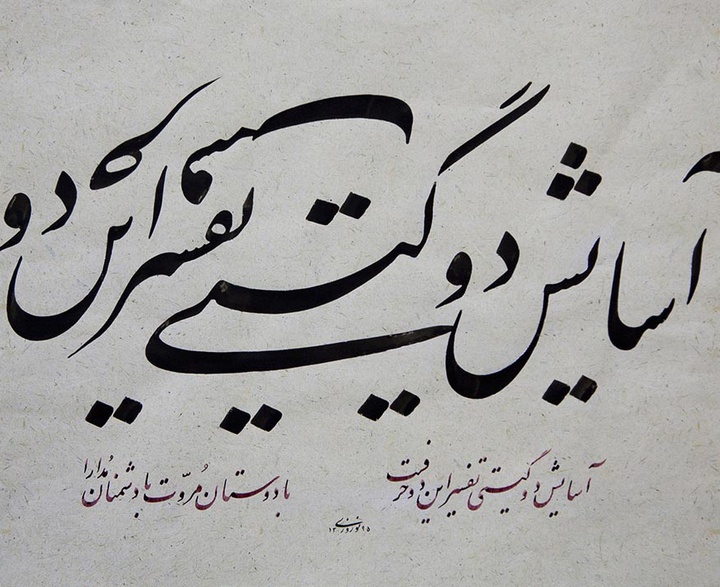 آسایش دو گیتی تفسیر این دو
آسایش دو گیتی تفسیر این دو حرفست
با دوستان مُروّت با دشمنان مُدارا